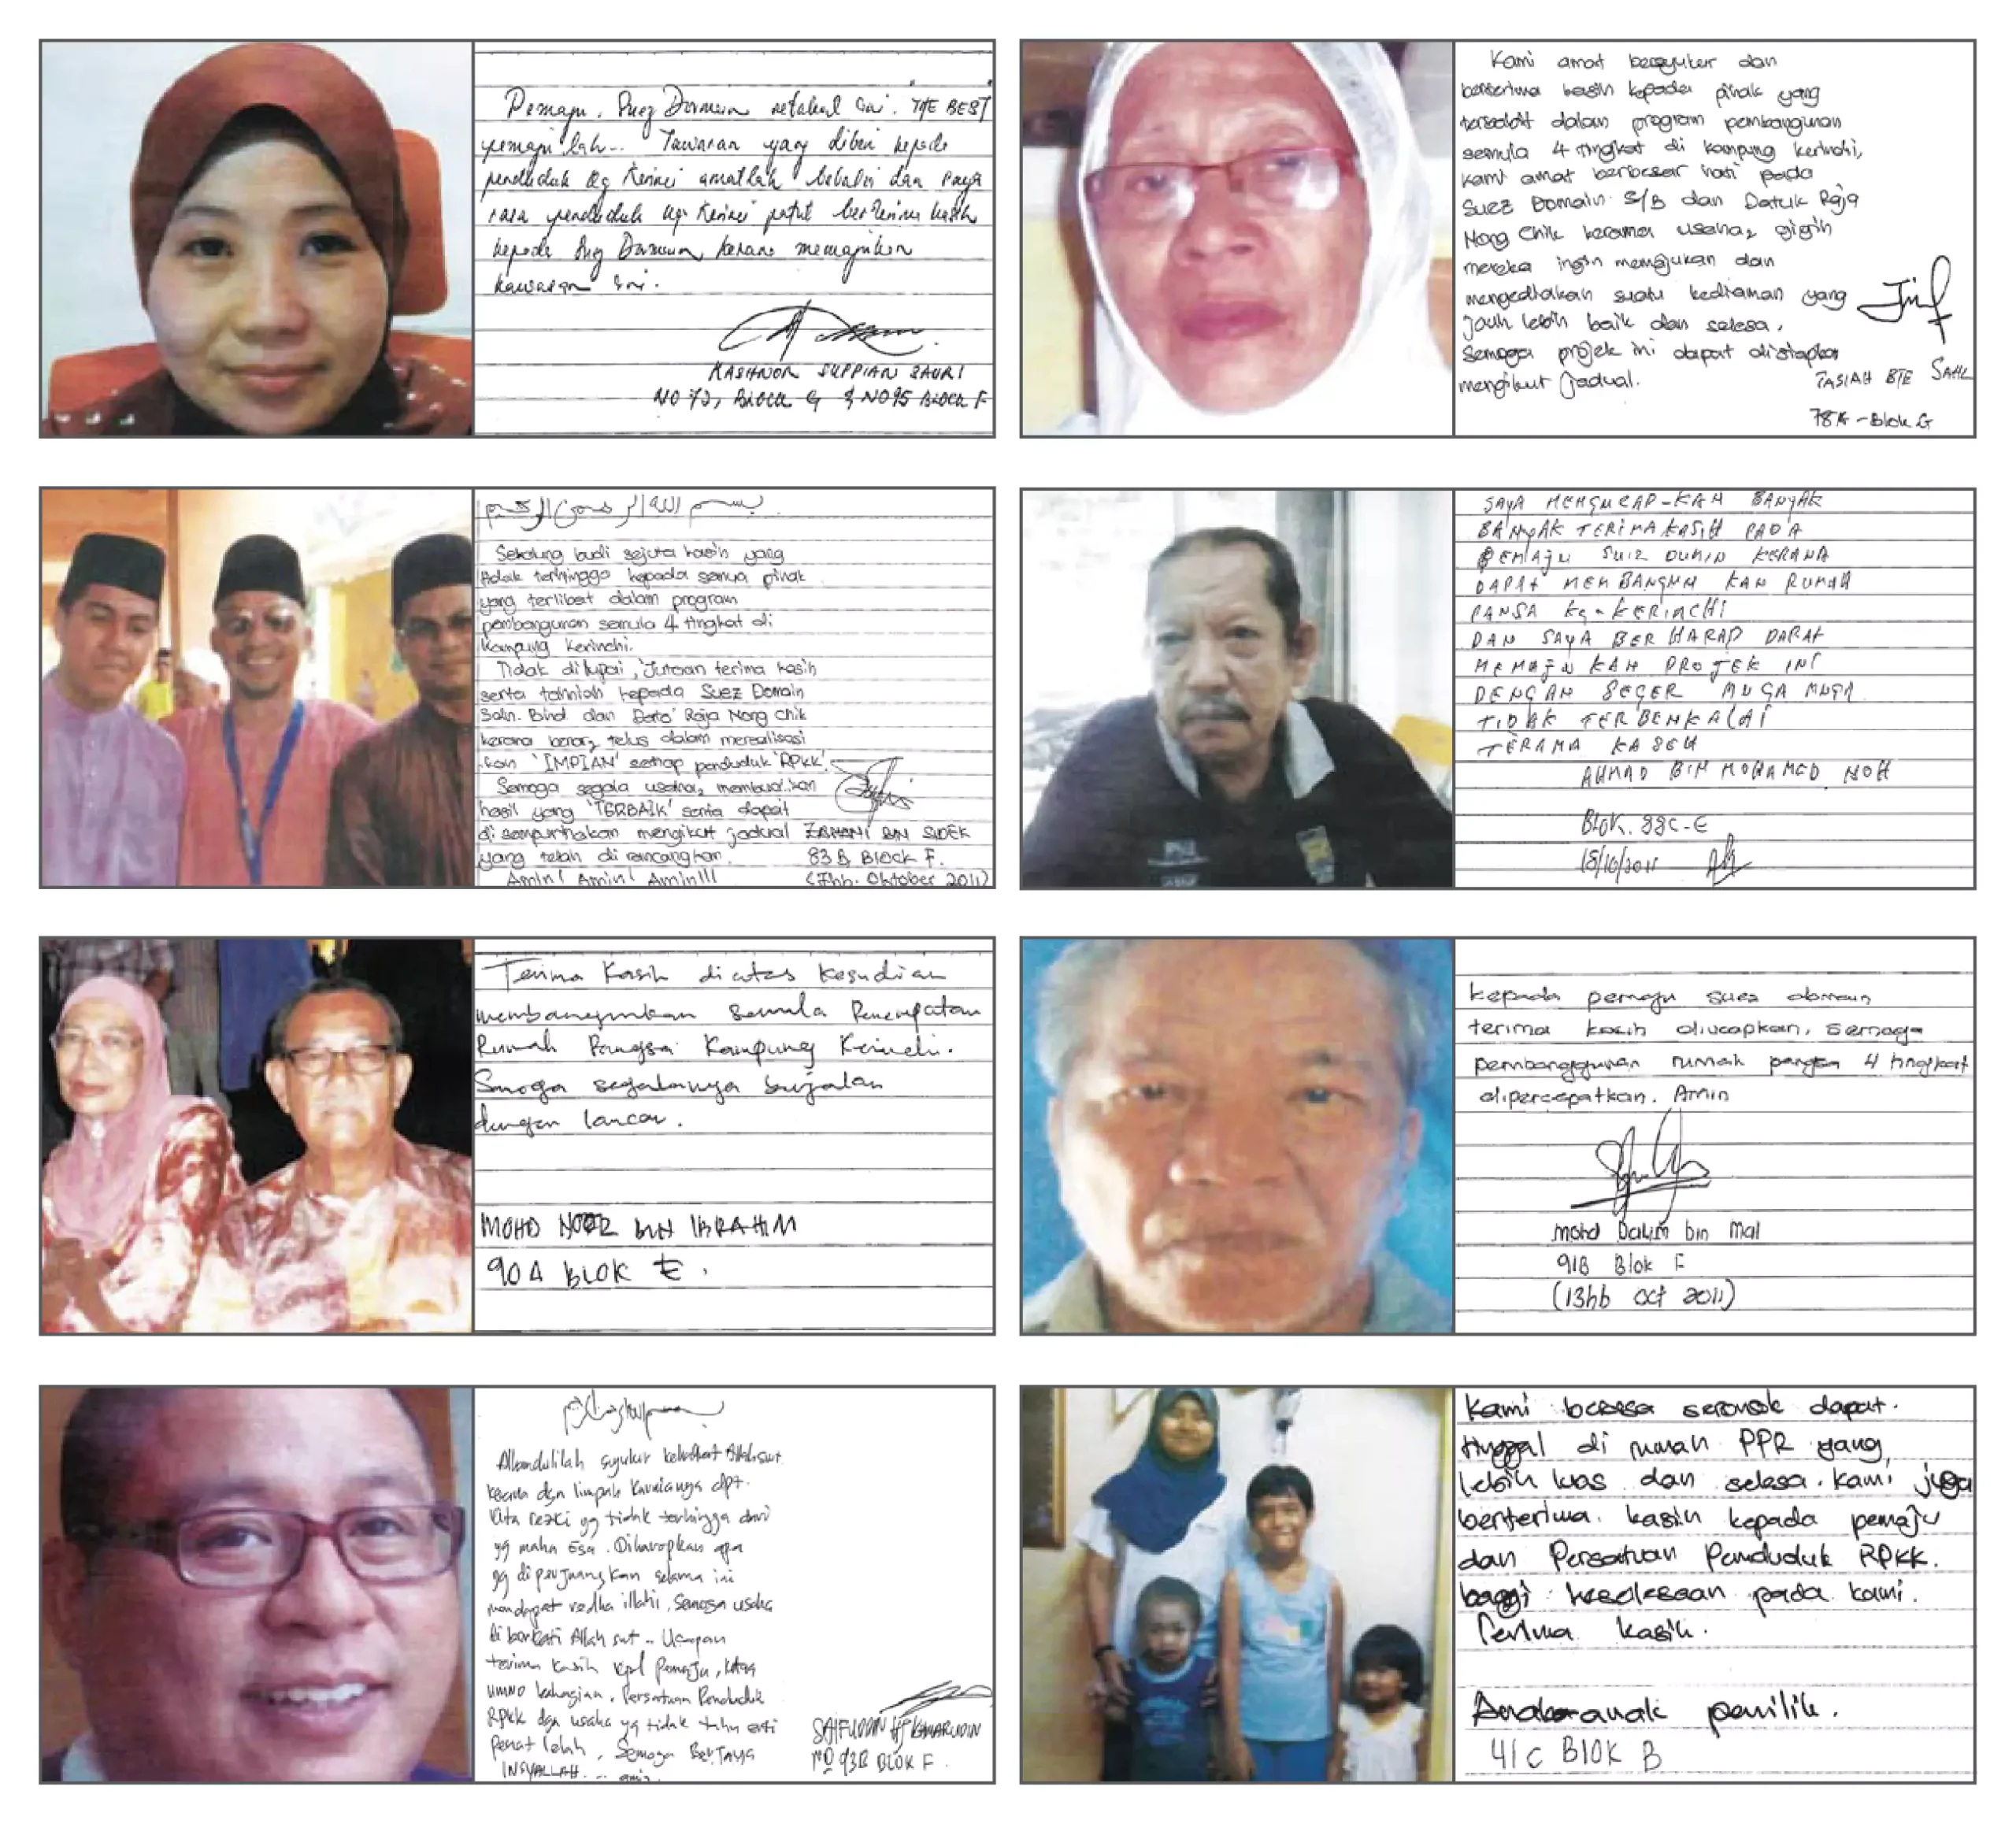 Pemaju, Suez Domain setakat ini. THE BEST
pemaju lah.. Tawaran yang diberi kepada
penduduk Kg Kerinci amatlah bebaloi dan saya
rasa penduduk Kg. Kerinci patut berterima kasih
kepada Suez Domain kerana memajukan
kawasan ini.
KASHNOR SUPPIAN SAURI
NO 72, BLOCK G & NO95 BLOCK F
Kami amat bersyukur dan
berterima kasih kepada pihak yang
terlibat dalam program pembangunan
semula 4 tingkat di kampung kerinchi,
kami amat berbesar hati pada
Suez Domain S/B dan Datuk Raja
Nong Chik kerana usaha2 gigih
mereka ingin memajukan dan
mengediakan suatu kediaman yang
jauh lebih baik dan selesa.
Semoga projek ini dapat disiapkan
mengikut jadual.
TASIAH BTE SAHL
78A - Blok G
بسم الله الرحمن الرحيم
Sekalung budi sejuta kasih yang
tidak terhingga kepada semua pihak
yang terlibat dalam program
pembangunan semula 4 tingkat di
Kampung Kerinchi.
Tidak dilupai, Jutaan terima kasih
serta tahniah kepada Suez Domain
Sdn. Bhd. dan Dato' Raja Nong Chik
kerana benar2 telus dalam merealisasi
kan 'IMPIAN' setiap penduduk 'RPKK'.
Semoga segala usaha2 membuahkan
hasil yang 'TERBAIK' serta dapat
di sempurnakan mengikut jadual
yang telah di rancangkan.
Amin! Amin! Amin!!!
ZAHANI BIN SIDEK
83B Block F.
(7hb. Oktober 2011)
SAYA MENGUCAP-KAN BANYAK
BANYAK TERIMA KASIH PADA
PEMAJU SUIZ DUMIN KERANA
DAPAT MEMBANGUN KAN RUMAH
PANSA KG-KERINCHI
DAN SAYA BER HARAP DAPAT
MEMAJU KAN PROJEK INI
DENGAN SEGER MUGA MUGA
TIDAK TERBENKALAI
TERAMA KASEH
AHMAD BIN MOHAMED NOH
BLOK. 88C-E
15/10/2011
Terima Kasih diatas kesudian
membangunkan semula Penempatan
Rumah Pangsa Kampung Kerinchi.
Smoga segalanya berjalan
dengan lancar.
MOHD NOOR BIN IBRAHIM
90A BLOK E.
kepada pemaju suez domain
terima kasih diucapkan, semoga
pembanggunan rumah pangsa 4 tingkat
dipercepatkan. Amin
Mohd Dalim bin Mal
91B Blok F
(13hb Oct 2011)
Alhamdulilah syukur kehadrat Allah swt
kerana dgn limpah kurnianya dpt.
kita rezki yg tidak terhingga dari
yg maha Esa. Diharapkan apa
yg diperjuangkan selama ini
mendapat redha illahi, Semoga usaha
di berkati Allah swt.. Ucapan
terima kasih kpd Pemaju, Ketua
UMNO bahagian, Persatuan Penduduk
RPKK dgn usaha yg tidak tahu erti
penat lelah, Semoga BERJAYA
INSYALLAH.... amin.
SAIFUDDIN HJ KAMARUDIN
NO 93B BLOK F.
Kami berasa seronok dapat.
tinggal di rumah PPR yang
lebih luas dan selesa. Kami juga
berterima kasih kepada pemaju
dan Persatuan Penduduk RPKK.
bagi keselesaan pada kami.
Terima kasih.
Anak-anak pemilik.
41C BLOK B